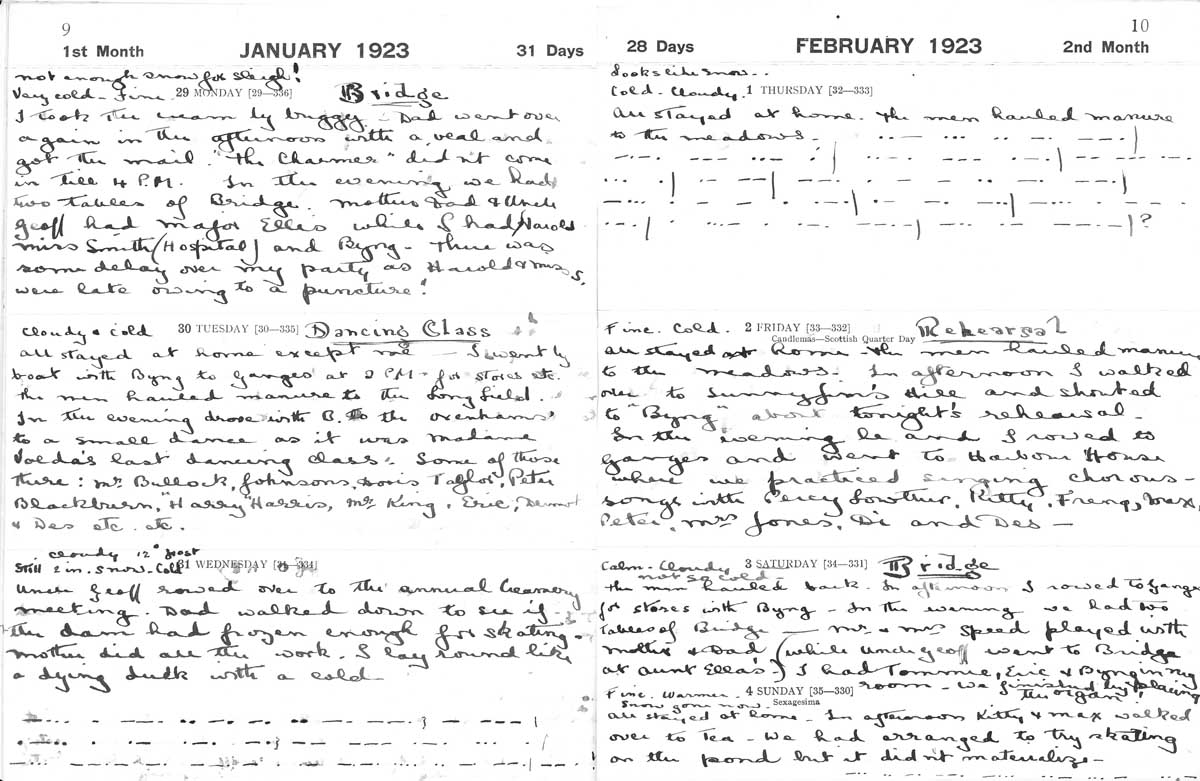 9
1st Month JANUARY 1923 31 Days
not enough snow for sleigh!
Very cold - Fine 29 MONDAY [29—336] Bridge
I took the cream by buggy - Dad went over
again in the afternoon with a veal and
got the mail. "The Charmer" didn't come
in till 4 P.M. In the evening we had
two tables of Bridge. Mother Dad & Uncle
Geoff had Major Ellis while I had Harold
Miss Smith (Hospital) and Byng - There was
some delay over my party as Harold & Miss S.
were late owing to a puncture!
Cloudy & cold 30 TUESDAY [30—335] Dancing Class
all stayed at home except me — I went by
boat with Byng to Ganges at 2 PM - for stores etc.
the men hauled manure to the Long field.
In the evening drove with B. to the Oxenhams'
to a small dance as it was Madame
Volda's last dancing class. Some of those
there: Mr Bullock, Johnsons, Doris Taylor, Peter
Blackburn, "Harry Harris, Mr King, Eric, Dermot
& Des etc. etc.
cloudy 12° frost
Still 2 in. snow - Cold 31 WEDNESDAY [31—334]
Uncle Geoff rowed over to the annual Creamery
meeting. Dad walked down to see if
the dam had frozen enough for skating -
Mother did all the work. I lay round like
a dying duck with a cold -
10
28 Days FEBRUARY 1923 2nd Month
Looks like snow..
Cold - Cloudy 1 THURSDAY [32—333]
All stayed at home. The men hauled manure
to the meadows.
Fine. Cold. 2 FRIDAY [33—332] Rehearsal
Candlemas—Scottish Quarter Day
all stayed at home - the men hauled manure
to the meadows. In afternoon I walked
over to Sunnyjim's Hill and shouted
to "Byng" about tonight's rehearsal -
In the evening he and I rowed to
Ganges and went to Harbour House
where we practiced singing chorus-
songs with Percy Lowther, Kitty, Freng, Max,
Peter, Mrs Jones, Di and Des —
Calm - Cloudy 3 SATURDAY [34—331] Bridge
not so cold
the men hauled bark. In afternoon I rowed to Ganges
for stores with Byng - In the evening we had two
tables of Bridge — Mr & Mrs Speed played with
mother & Dad (while Uncle Geoff went to Bridge
at Aunt Ella's) I had Tommie, Eric & Byng in my
room - We finished by playing
the organ!
Fine. Warmer. 4 SUNDAY [35—330]
Snow gone now. Sexagesima
all stayed at home - In afternoon Kitty & Max walked
over to tea - We had arranged to try skating
on the pond but it didn't materialize -